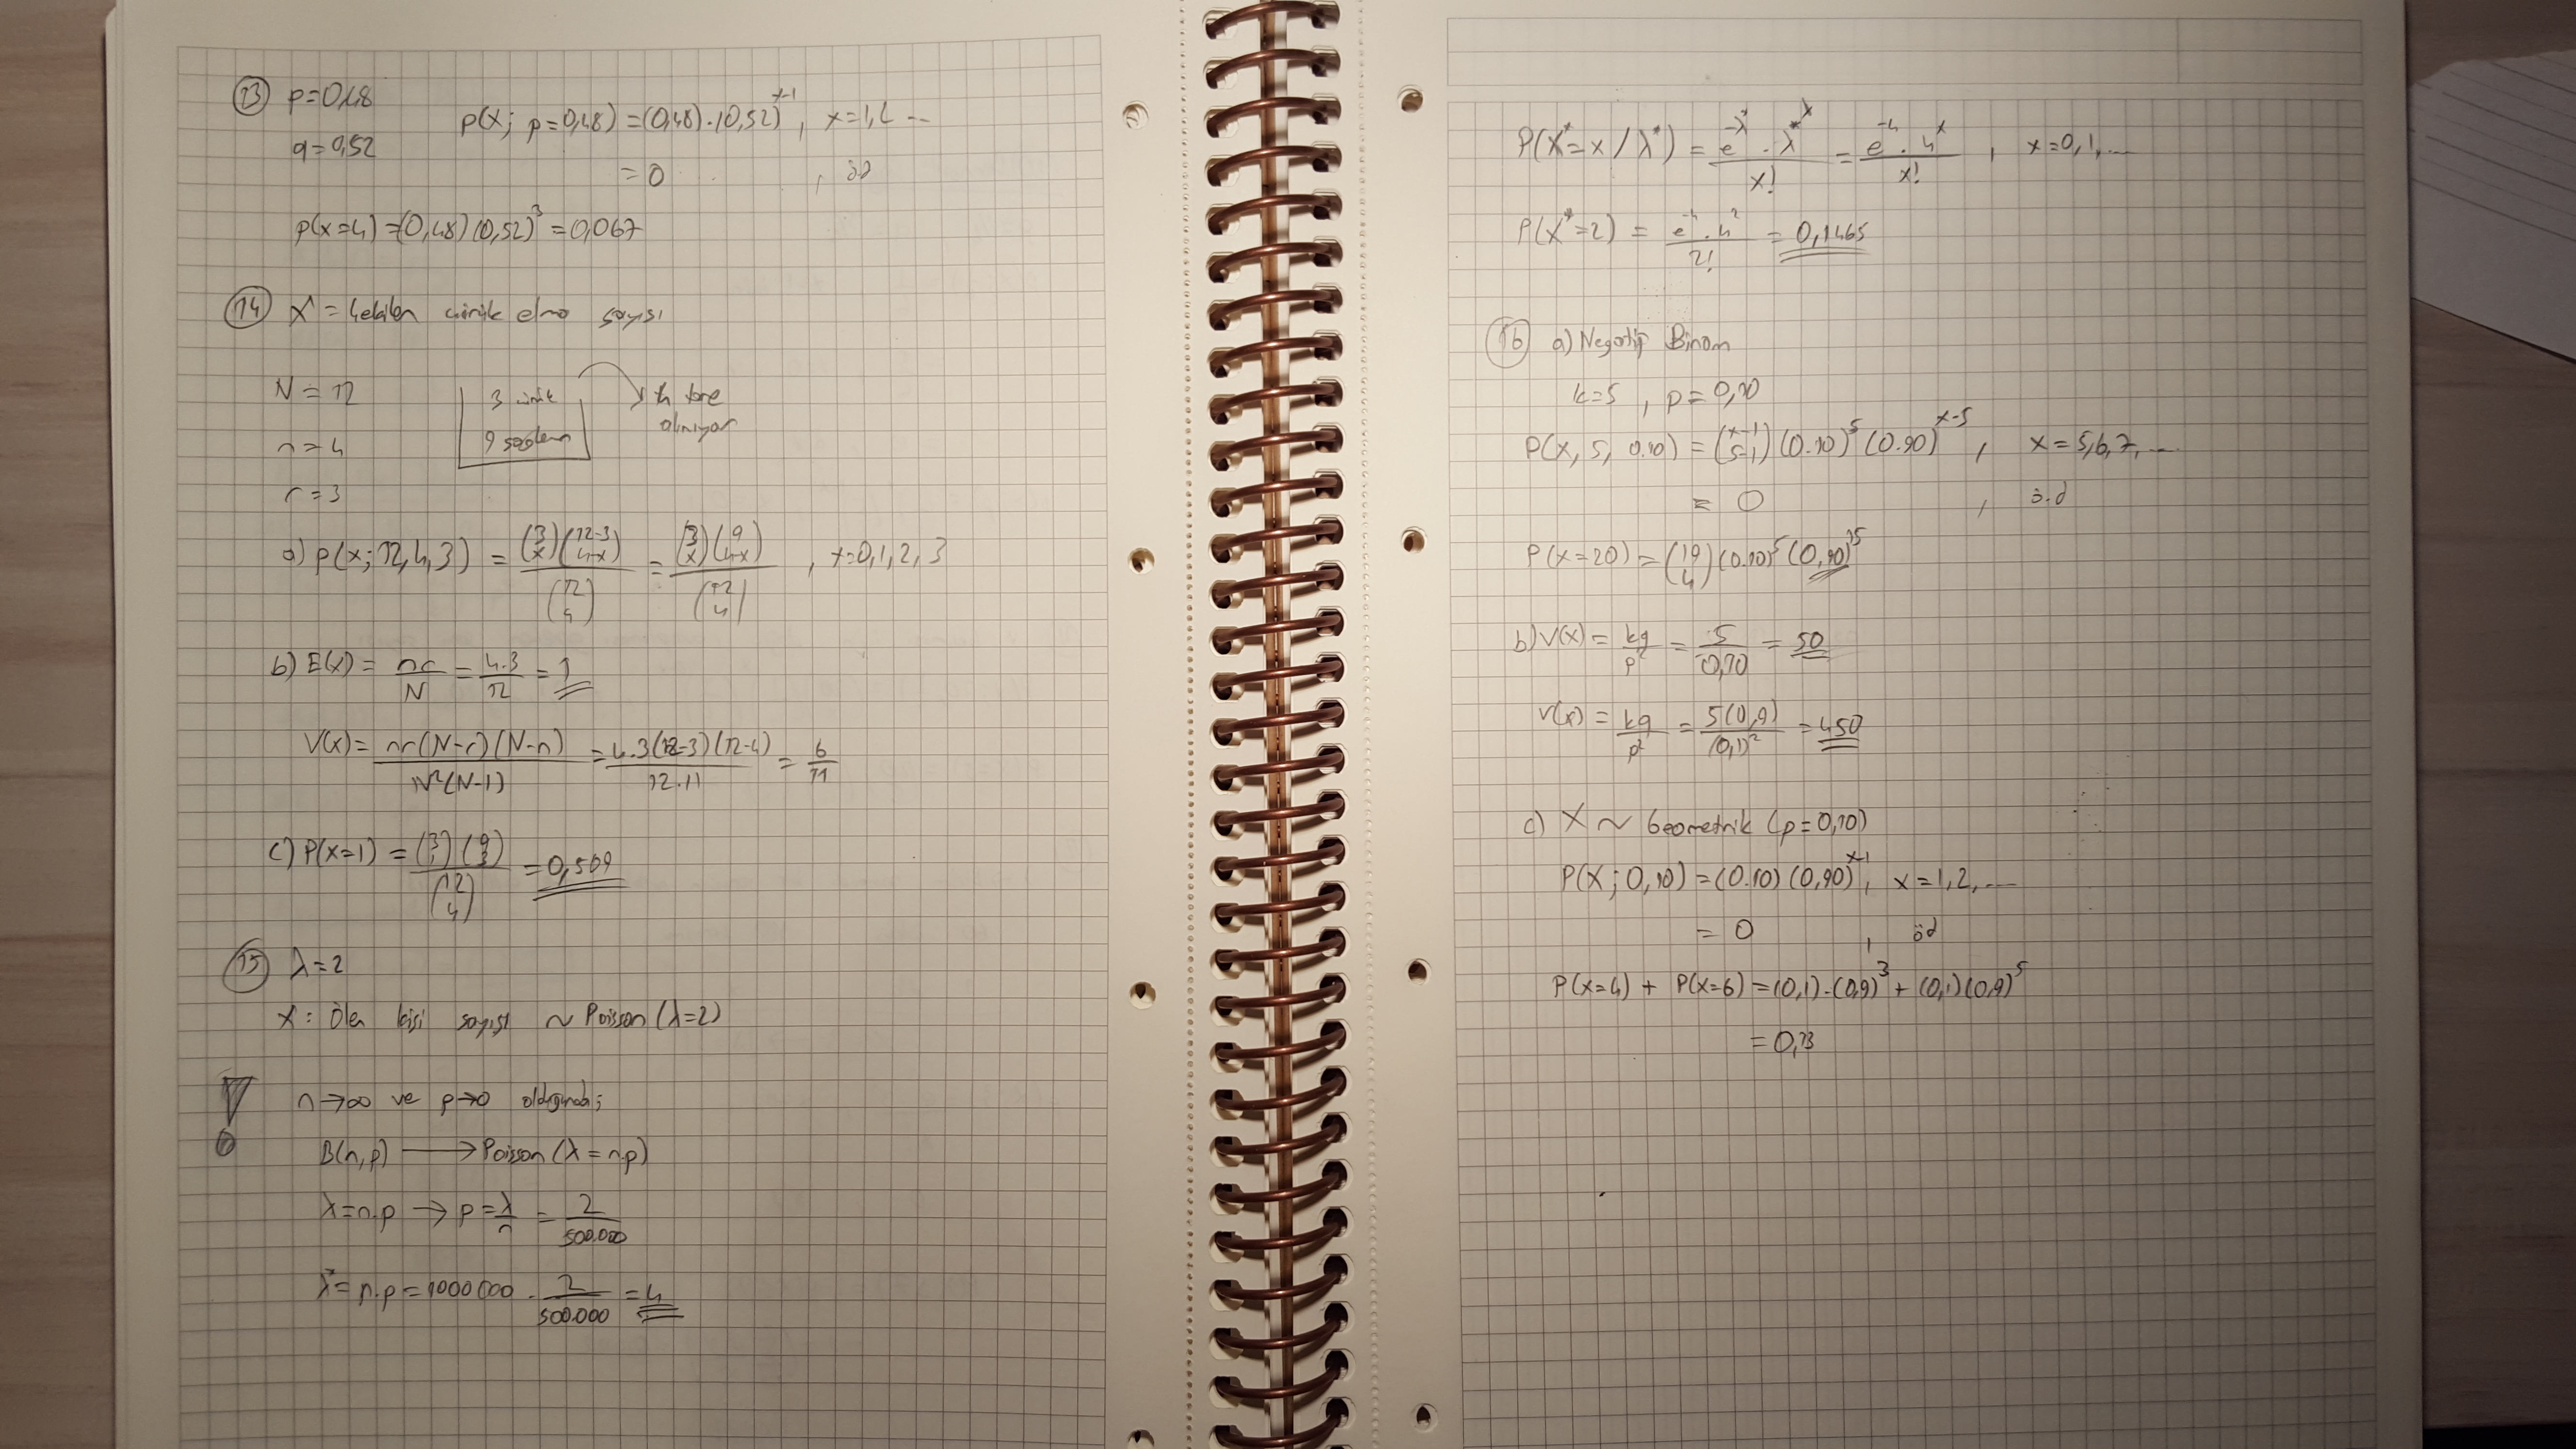 13 p=0,48
q=0,52
p(x; p=0,48) = (0,48).(0,52)^x-1, x=1,2 ...
= 0 , öd
p(x=4) = (0,48)(0,52)^3 = 0,067
14 X = çekilen çürük elma sayısı
N = 12
n = 4
r = 3
3 çürük
9 sağlam
tane
alınıyor
a) p(x; 12,4,3) = (3 x)(12-3 4-x) / (12 4) = (3 x)(9 4-x) / (12 4) , x=0,1,2,3
b) E(x) = nr/N = 4.3/12 = 1
V(x) = nr(N-r)(N-n) / N²(N-1) = 4.3(12-3)(12-4) / 12.11 = 6/11
c) P(x=1) = (3 1)(9 3) / (12 4) = 0,509
15 λ=2
X: Ölen kişi sayısı ~ Poisson (λ=2)
n→∞ ve p→0 olduğunda;
B(n,p) → Poisson (λ = n.p)
λ=n.p → p = λ/n = 2/500.000
λ* = n.p = 1000000 . 2/500.000 = 4
P(X*=x / λ*) = e^-λ* . λ*^x / x! = e^-4 . 4^x / x! , x=0,1,...
P(X*=2) = e^-4 . 4^2 / 2! = 0,1465
16 a) Negatif Binom
k=5 , p=0,10
P(X, 5, 0.10) = (x-1 5-1)(0.10)^5 (0.90)^x-5 , x=5,6,7,...
= 0 , ö.d
P(x=20) = (19 4)(0.10)^5 (0,90)^15
b) V(x) = kq/p² = 5/0,10 = 50
V(x) = kq/p² = 5(0,9)/(0,1)² = 450
c) X ~ Geometrik (p=0,10)
P(X; 0,10) = (0.10)(0,90)^x-1, x=1,2,...
= 0 , öd
P(x=4) + P(x=6) = (0,1).(0,9)^3 + (0,1)(0,9)^5
= 0,13